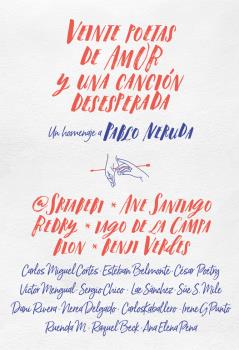 VEINTE POETAS
DE AMOR
Y UNA CANCIÓN
DESESPERADA
Un homenaje a PABLO NERUDA
@SRTABEBI * ANE SANTIAGO
REDRY * IAGO DE LA CAMPA
DION * BENJI VERDES
Carlos Miguel Cortés · Esteban Belmonte · César Poetry
Víctor Mengual · Sergio Chico · Lae Sánchez · Sue S. Mile
Dani Rivera · Nerea Delgado · Carlos Kaballero · Irene G Punto
Ruenda M. · Raquel Beck · Ana Elena Pena